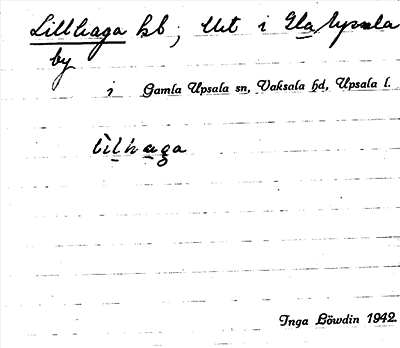 Lillhaga hb; Urt i Gla Upsala
by
i Gamla Upsala sn, Vaksala hd, Upsala l.
lìlhaga
Inga Löwdin 1942